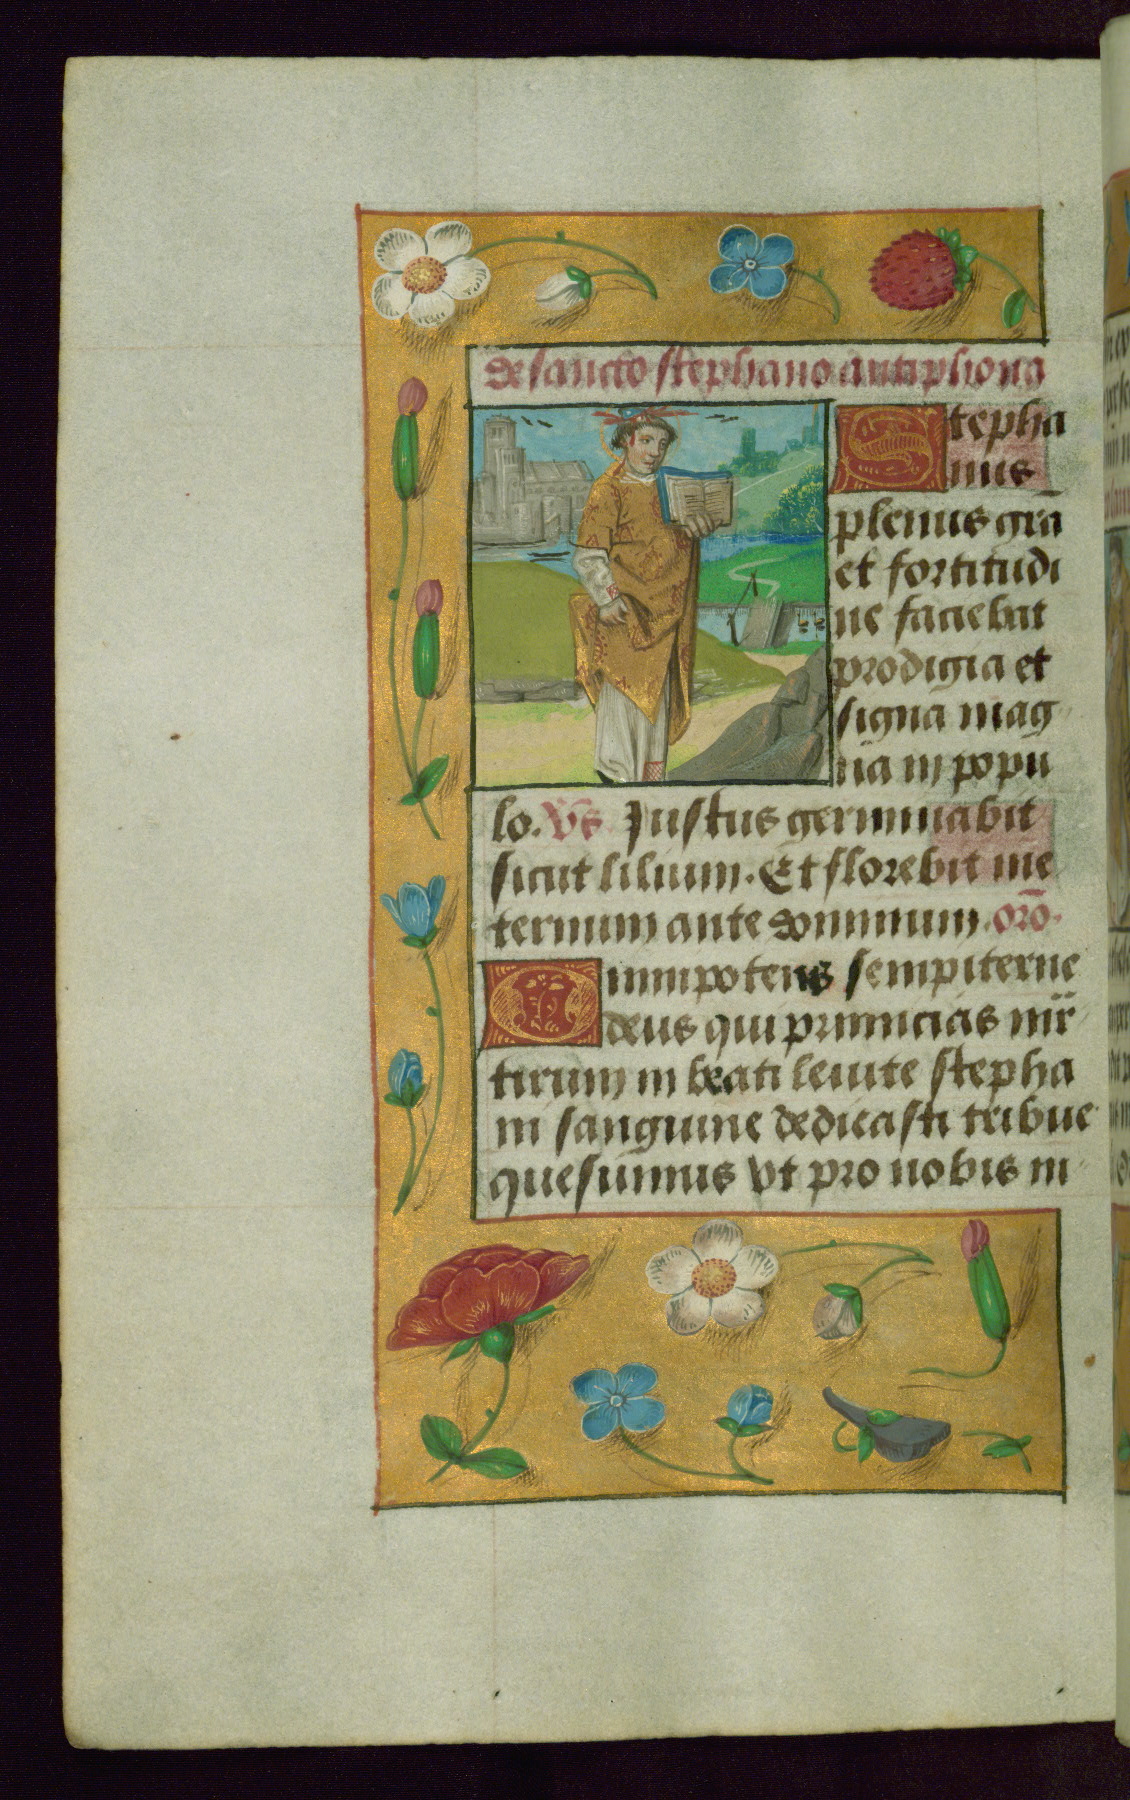 de sancto stephano antiphona
Stepha
nus
plenus gr̄a
et fortitudi
ne faciebat
prodigia et
signa mag
na in popu
lo. v̄s Justus germinabit
sicut lilium. Et florebit in e
ternum ante dominum. or̄o.
Omnipotens sempiterne
deus qui primicias mr̄
tirum in beati leuite stepha
ni sanguine dedicasti tribue
quesumus vt pro nobis in